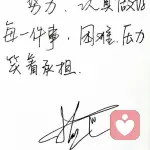 努力,认真做好
每一件事,困难、压力
笑着承担.